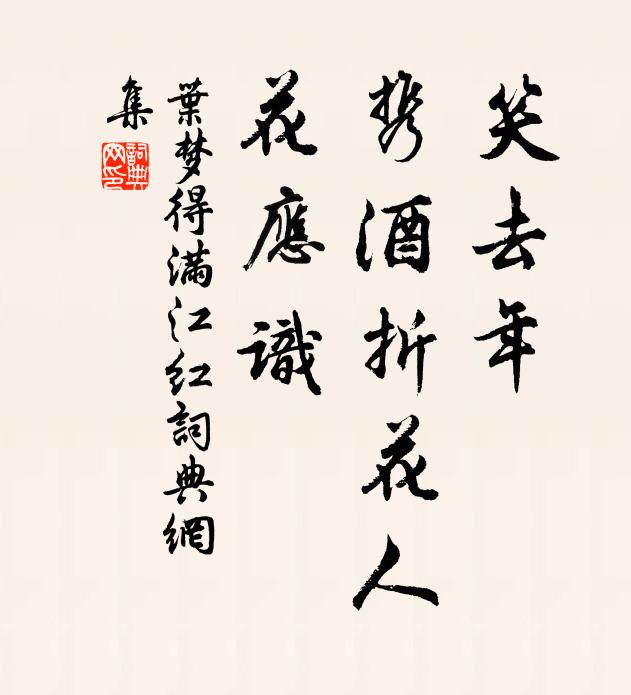 笑去年
携酒折花人
花應識
葉梦得滿江红詞典網
集
詞典
网印